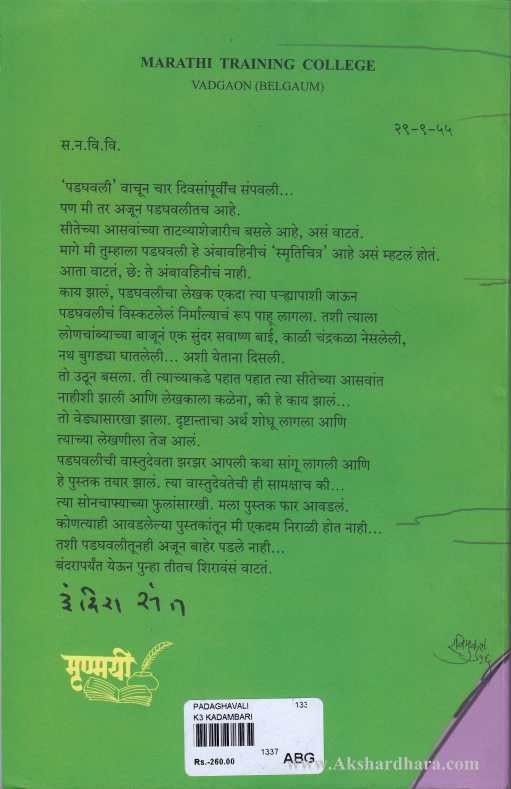 MARATHI TRAINING COLLEGE
VADGAON (BELGAUM)
२९-९-५५
स.न.वि.वि.
'पडघवली' वाचून चार दिवसांपूर्वीच संपवली...
पण मी तर अजून पडघवलीतच आहे.
सीतेच्या आसवांच्या ताटव्याशेजारीच बसले आहे, असं वाटतं.
मागे मी तुम्हाला पडघवली हे अंबावहिनीचं 'स्मृतिचित्र' आहे असं म्हटलं होतं.
आता वाटतं, छे: ते अंबावहिनीचं नाही.
काय झालं, पडघवलीचा लेखक एकदा त्या पऱ्ह्यापाशी जाऊन
पडघवलीचं विस्कटलेलं निर्माल्याचं रूप पाहू लागला. तशी त्याला
लोणचांब्याच्या बाजूनं एक सुंदर सवाष्ण बाई, काळी चंद्रकळा नेसलेली,
नथ बुगड्या घातलेली... अशी येताना दिसली.
तो उठून बसला. ती त्याच्याकडे पहात पहात त्या सीतेच्या आसवांत
नाहीशी झाली आणि लेखकाला कळेना, की हे काय झालं...
तो वेड्यासारखा झाला. दृष्टान्ताचा अर्थ शोधू लागला आणि
त्याच्या लेखणीला तेज आलं.
पडघवलीची वास्तुदेवता झरझर आपली कथा सांगू लागली आणि
हे पुस्तक तयार झालं. त्या वास्तुदेवतेची ही सामक्षाच की...
त्या सोनचाफ्याच्या फुलांसारखी. मला पुस्तक फार आवडलं.
कोणत्याही आवडलेल्या पुस्तकांतून मी एकदम निराळी होत नाही...
तशी पडघवलीतूनही अजून बाहेर पडले नाही...
बंदरापर्यंत येऊन पुन्हा तीतच शिरावंसं वाटतं.
इंदिरा संत
रविमुकुल
मृण्मयी
PADAGHAVALI
K3 KADAMBARI
133
1337
Rs.-260.00
ABG
www.Akshardhara.com